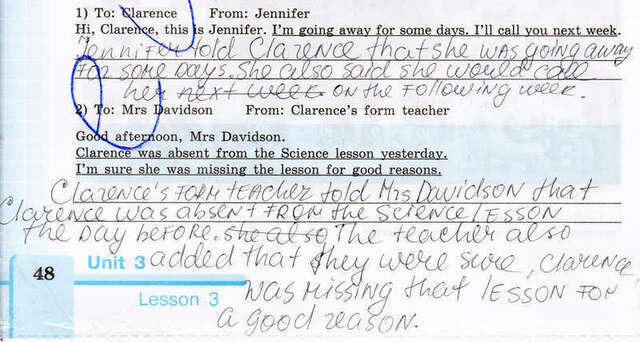 1) To: Clarence From: Jennifer
Hi, Clarence, this is Jennifer. I'm going away for some days. I'll call you next week.
Jennifer told Clarence that she was going away
for some days. She also said she would call
her next week. on the following week.
2) To: Mrs Davidson From: Clarence's form teacher
Good afternoon, Mrs Davidson.
Clarence was absent from the Science lesson yesterday.
I'm sure she was missing the lesson for good reasons.
Clarence's form teacher told Mrs Davidson that
Clarence was absent from the science lesson
the day before. she also The teacher also
added that they were sure, Clarence
was missing that lesson for
a good reason.
48
Unit 3
Lesson 3